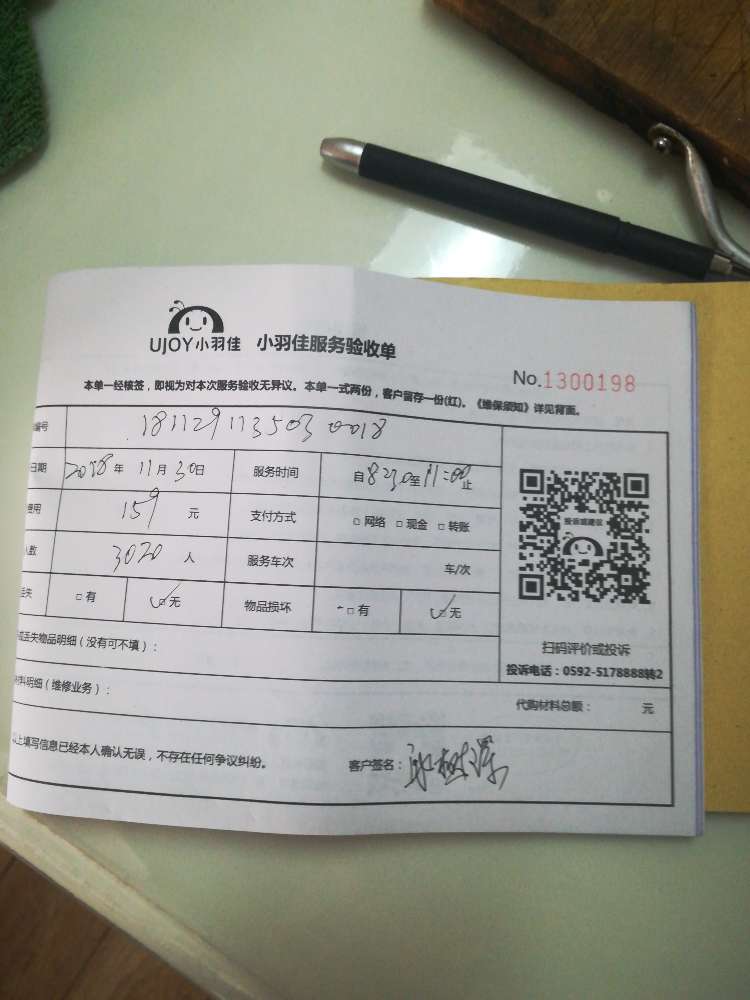 UJOY小羽佳 小羽佳服务验收单
No.1300198
本单一经核签，即视为对本次服务验收无异议。本单一式两份，客户留存一份(红)。《维保须知》详见背面。
编号 181129113503 0018
日期 2018年 11月30日 服务时间 自8:30至11:00止
费用 159 元 支付方式 □网络 □现金 □转账
人数 3020 人 服务车次 车/次
丢失 □有 ☑无 物品损坏 □有 ☑无
投诉或建议
扫码评价或投诉
投诉电话：0592-5178888转2
丢失物品明细（没有可不填）：
材料明细（维修业务）： 代购材料总额： 元
以上填写信息已经本人确认无误，不存在任何争议纠纷。 客户签名：